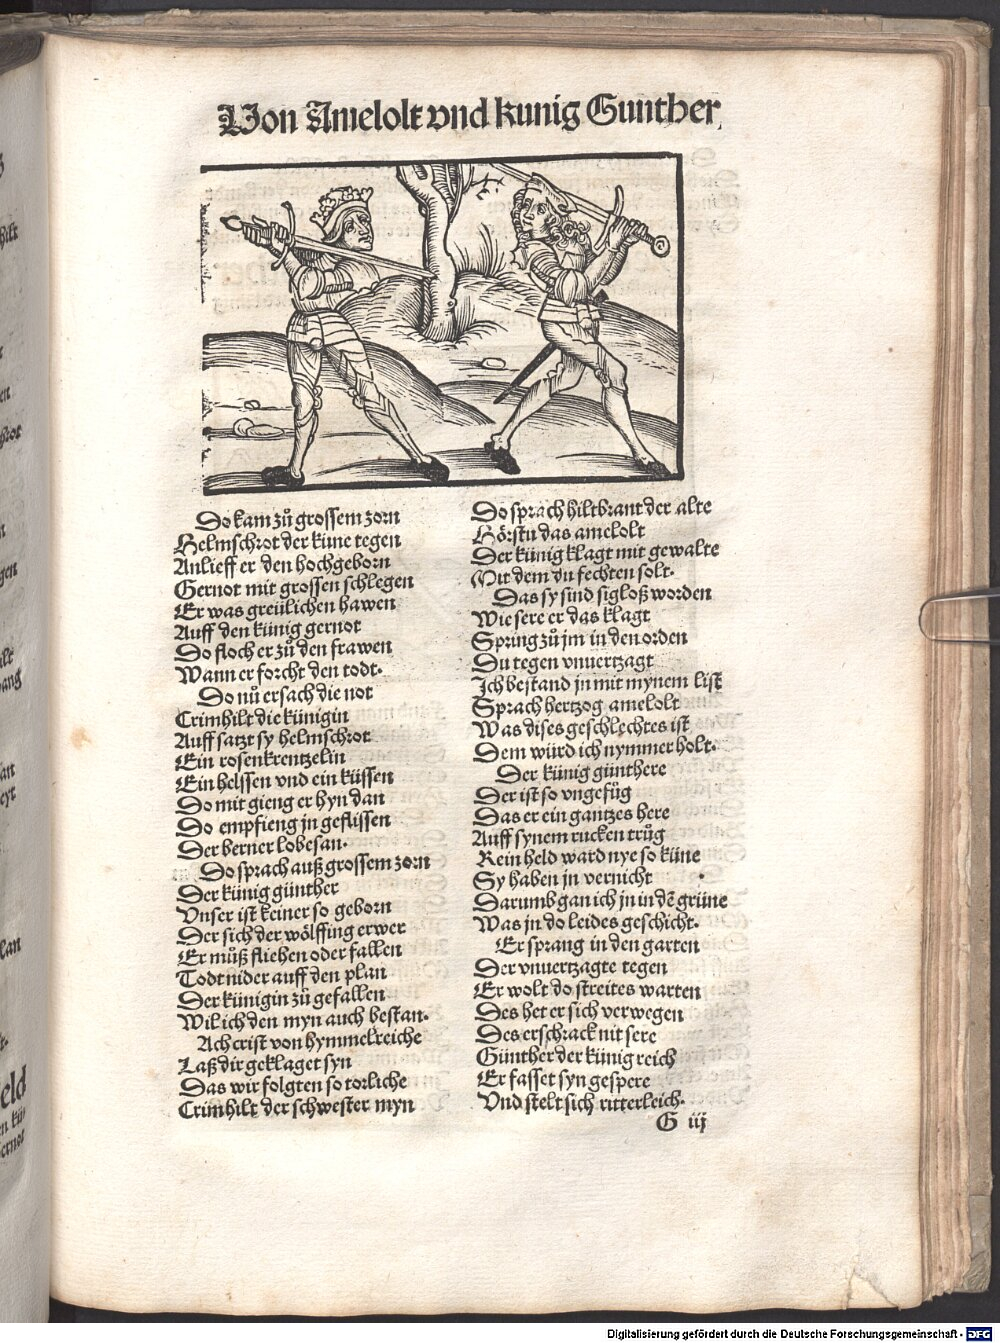 Von Amelolt vnd kunig Gunther
Do kam zů grossem zorn
Helmschrot der küne tegen
Anlieff er den hochgeborn
Gernot mit grossen schlegen
Er was greülichen hawen
Auff den künig gernot
Do floch er zů den frawen
Wann er forcht den todt.
Do nů ersach die not
Crimhilt die künigin
Auff satzt sy helmschrot
Ein rosenkrentzelin
Ein helssen vnd ein küssen
Do mit gieng er hyn dan
Do empfieng jn geflissen
Der berner lobesan.
Do sprach auß grossem zorn
Der künig günther
Vnser ist keiner so geborn
Der sich der wölffing erwer
Er můß fliehen oder fallen
Todt nider auff den plan
Der künigin zů gefallen
Wil ich den myn auch bestan.
Ach crist von hymmelreiche
Laß dir geklaget syn
Das wir folgten so torliche
Crimhilt der schwester myn
Do sprach hiltbrant der alte
Hörstu das amelolt
Der künig klagt mit gewalte
Mit dem du fechten solt.
Das sy sind sigloß worden
Wie sere er das klagt
Spring zů jm in den orden
Du tegen vnuertzagt
Ich bestand jn mit mynem list
Sprach hertzog amelolt
Was dises geschlechtes ist
Dem würd ich nymmer holt.
Der künig günthere
Der ist so vngefüg
Das er ein gantzes here
Auff synem rucken trůg
Kein held ward nye so küne
Sy haben jn vernicht
Darumb gan ich jn in dē grüne
Was jn do leides geschicht.
Er sprang in den garten
Der vnuertzagte tegen
Er wolt do streites warten
Des het er sich verwegen
Des erschrack nit sere
Günther der künig reich
Er fasset syn gespere
Vnd stelt sich ritterleich.
G iij
Digitalisierung gefördert durch die Deutsche Forschungsgemeinschaft - DFG